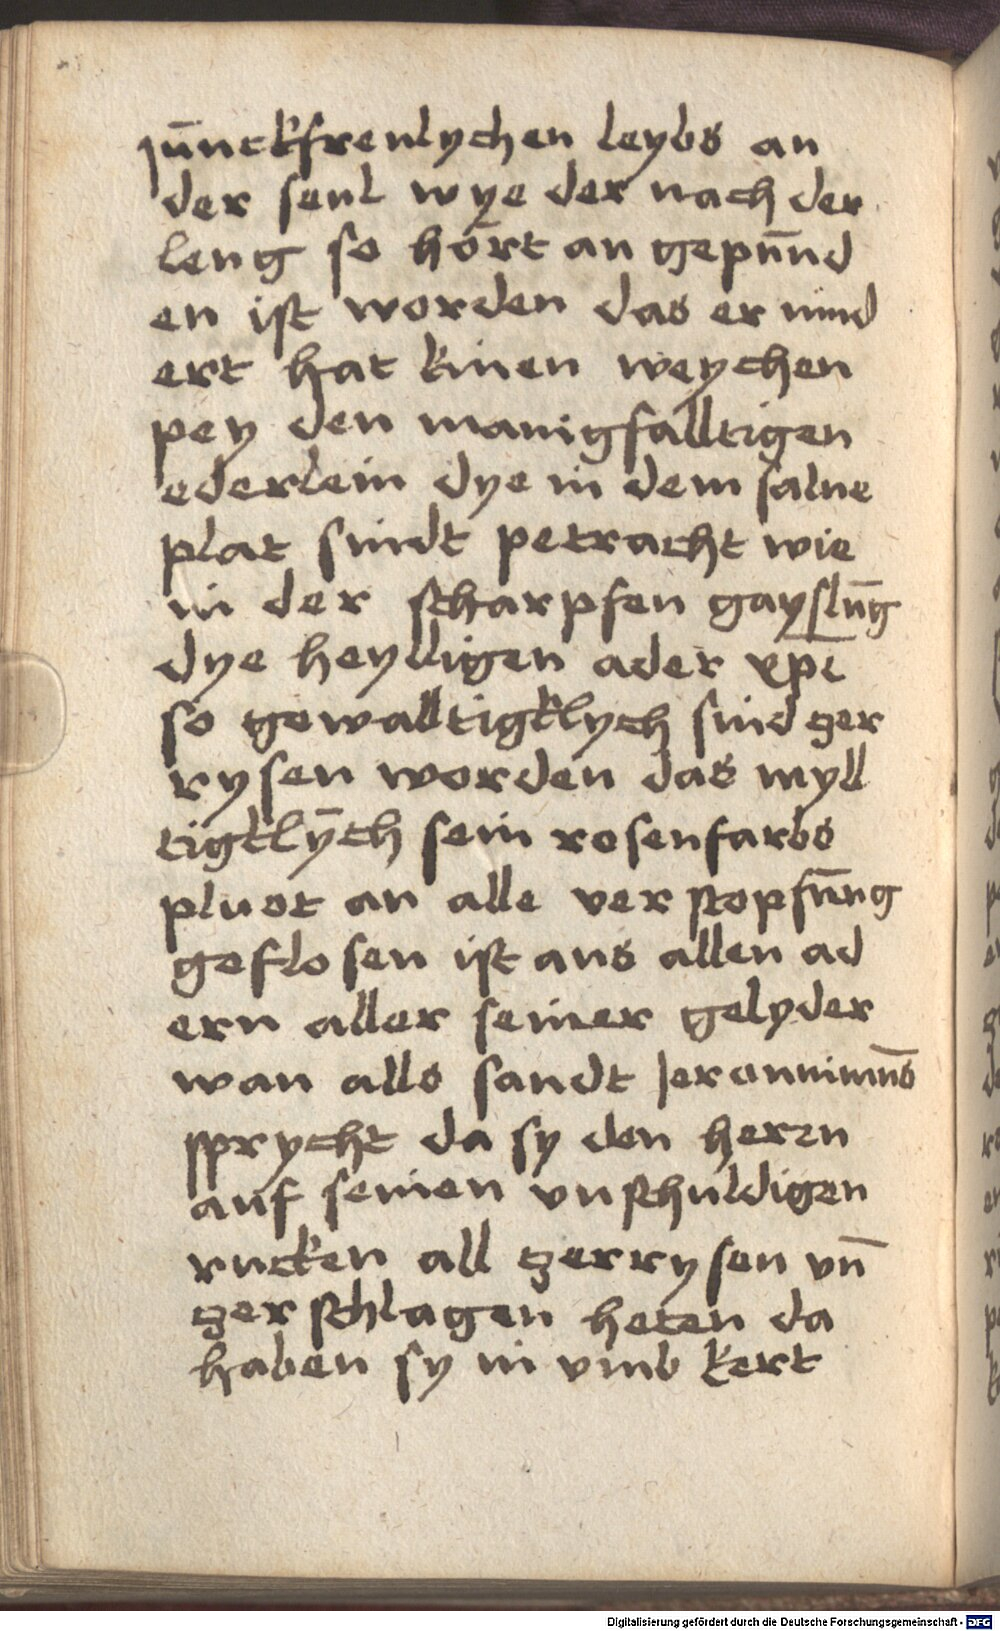 jūnckfreulychen leybs an
der seul wye der nach der
leng so hört an gepūnd
en ist worden das er nind
ert hat kinen weychen
pey den manigfalltigen
ederlein dye in dem salue
plat sindt petracht wie
in der scharpfen gayslūg
dye heylligen ader xp̄i
so gewalltigklych sind zer
rysen worden das myll
tigklȳch sein rosenfarbs
pluot an alle ver stopfūng
geflo sen ist aus allen ad
ern aller seiner gelyder
wan alls sandt Jeronnimūs
sprycht da sy den herzn
auf seinen vnschuldigen
rucken all zerrysen vn̄
zer schlagen heten da
haben sy in vmb kert
Digitalisierung gefördert durch die Deutsche Forschungsgemeinschaft - DFG